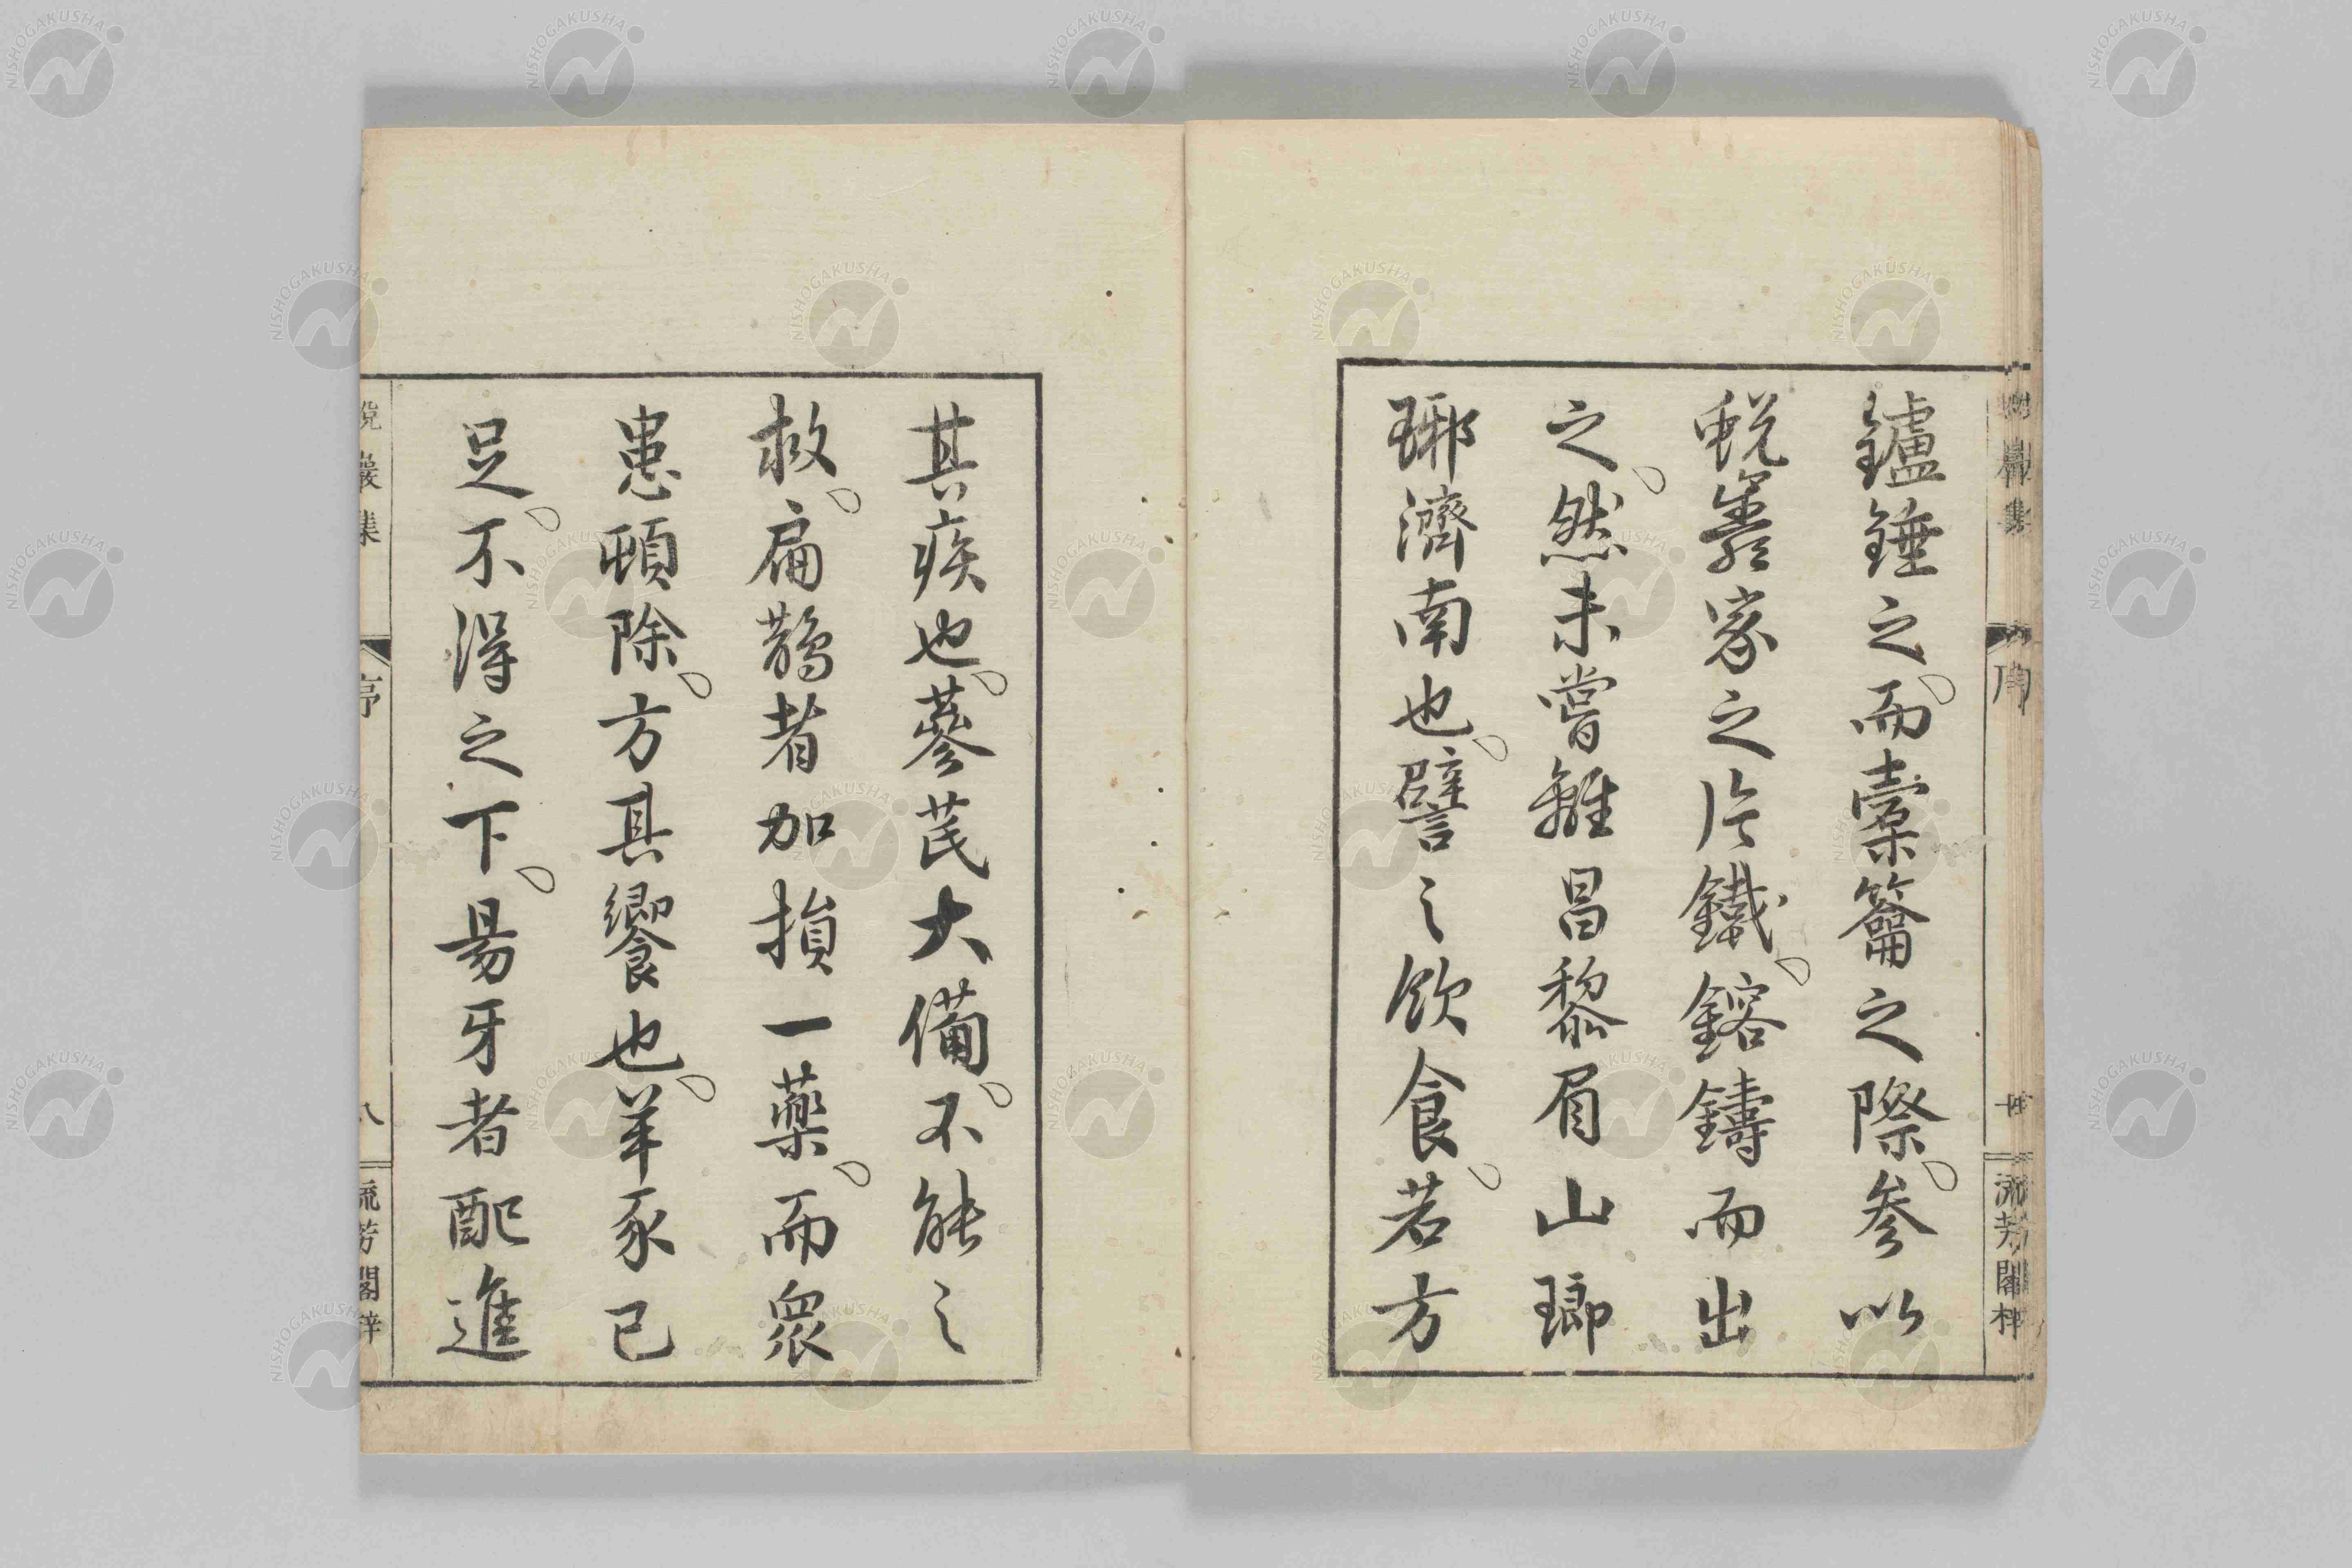 鑪錘之。而橐籥之際。参以
蛻巖家之片鐵。鎔鑄而出
之。然未嘗離昌黎眉山瑯
琊濟南也。譬之飲食。若方
其疾也。蔘芪大備。不能之
救。扁鵲者加損一藥。而衆
患頓除。方其饗也。羊豕已
足。不得之下。易牙者配進
蛻巖集
序
八
流芳閣梓
NISHOGAKUSHA